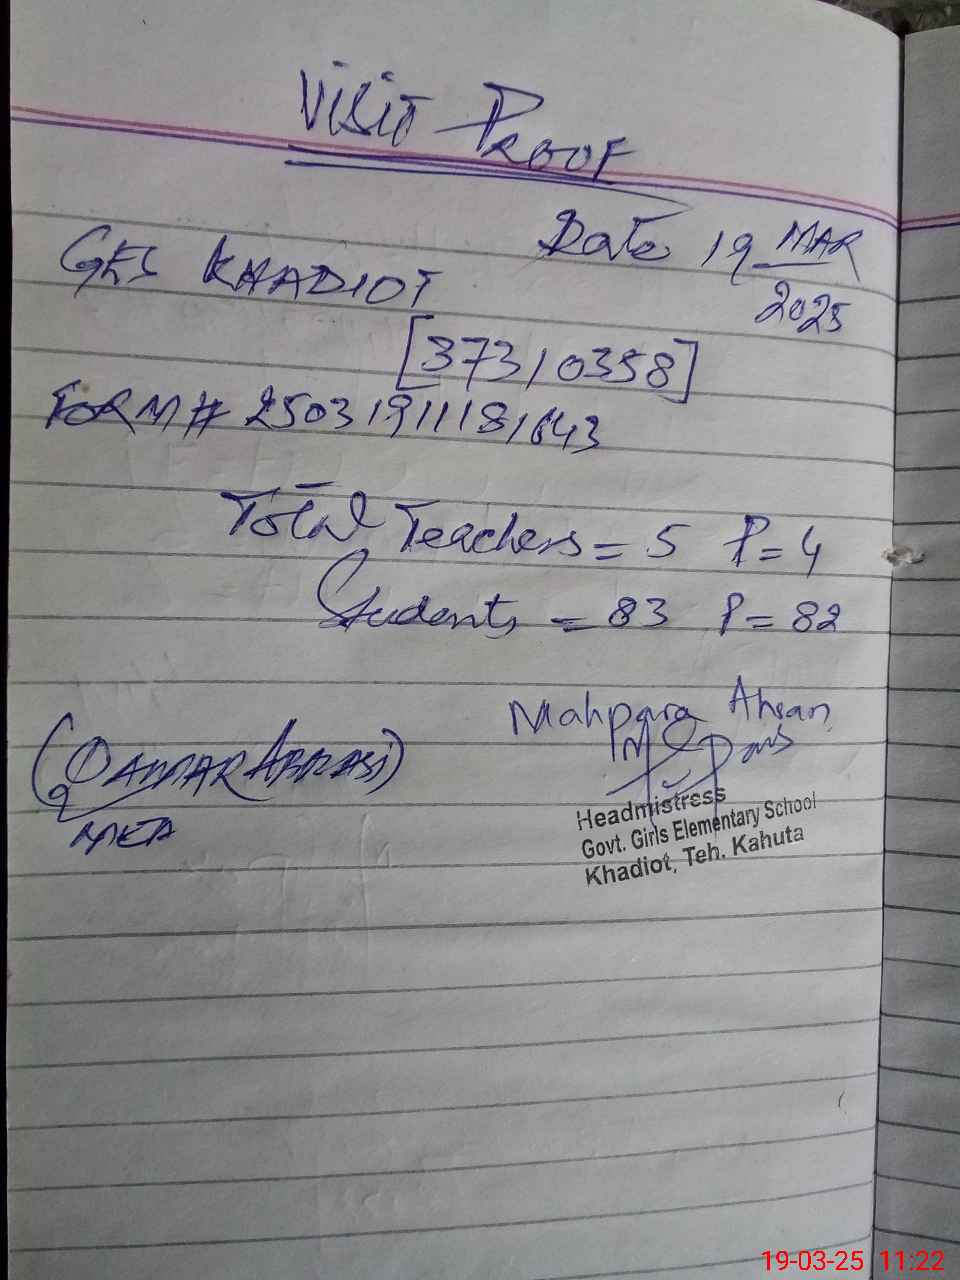 Visit Proof
Date 19 MAR
2025
GES KHADIOT
[37310358]
FORM # 250319111181643
Total Teachers = 5 P = 4
Students = 83 P = 82
Mahpara Ahsan
(QAMAR ABBASI)
MEA
Headmistress
Govt. Girls Elementary School
Khadiot, Teh. Kahuta
19-03-25 11:22